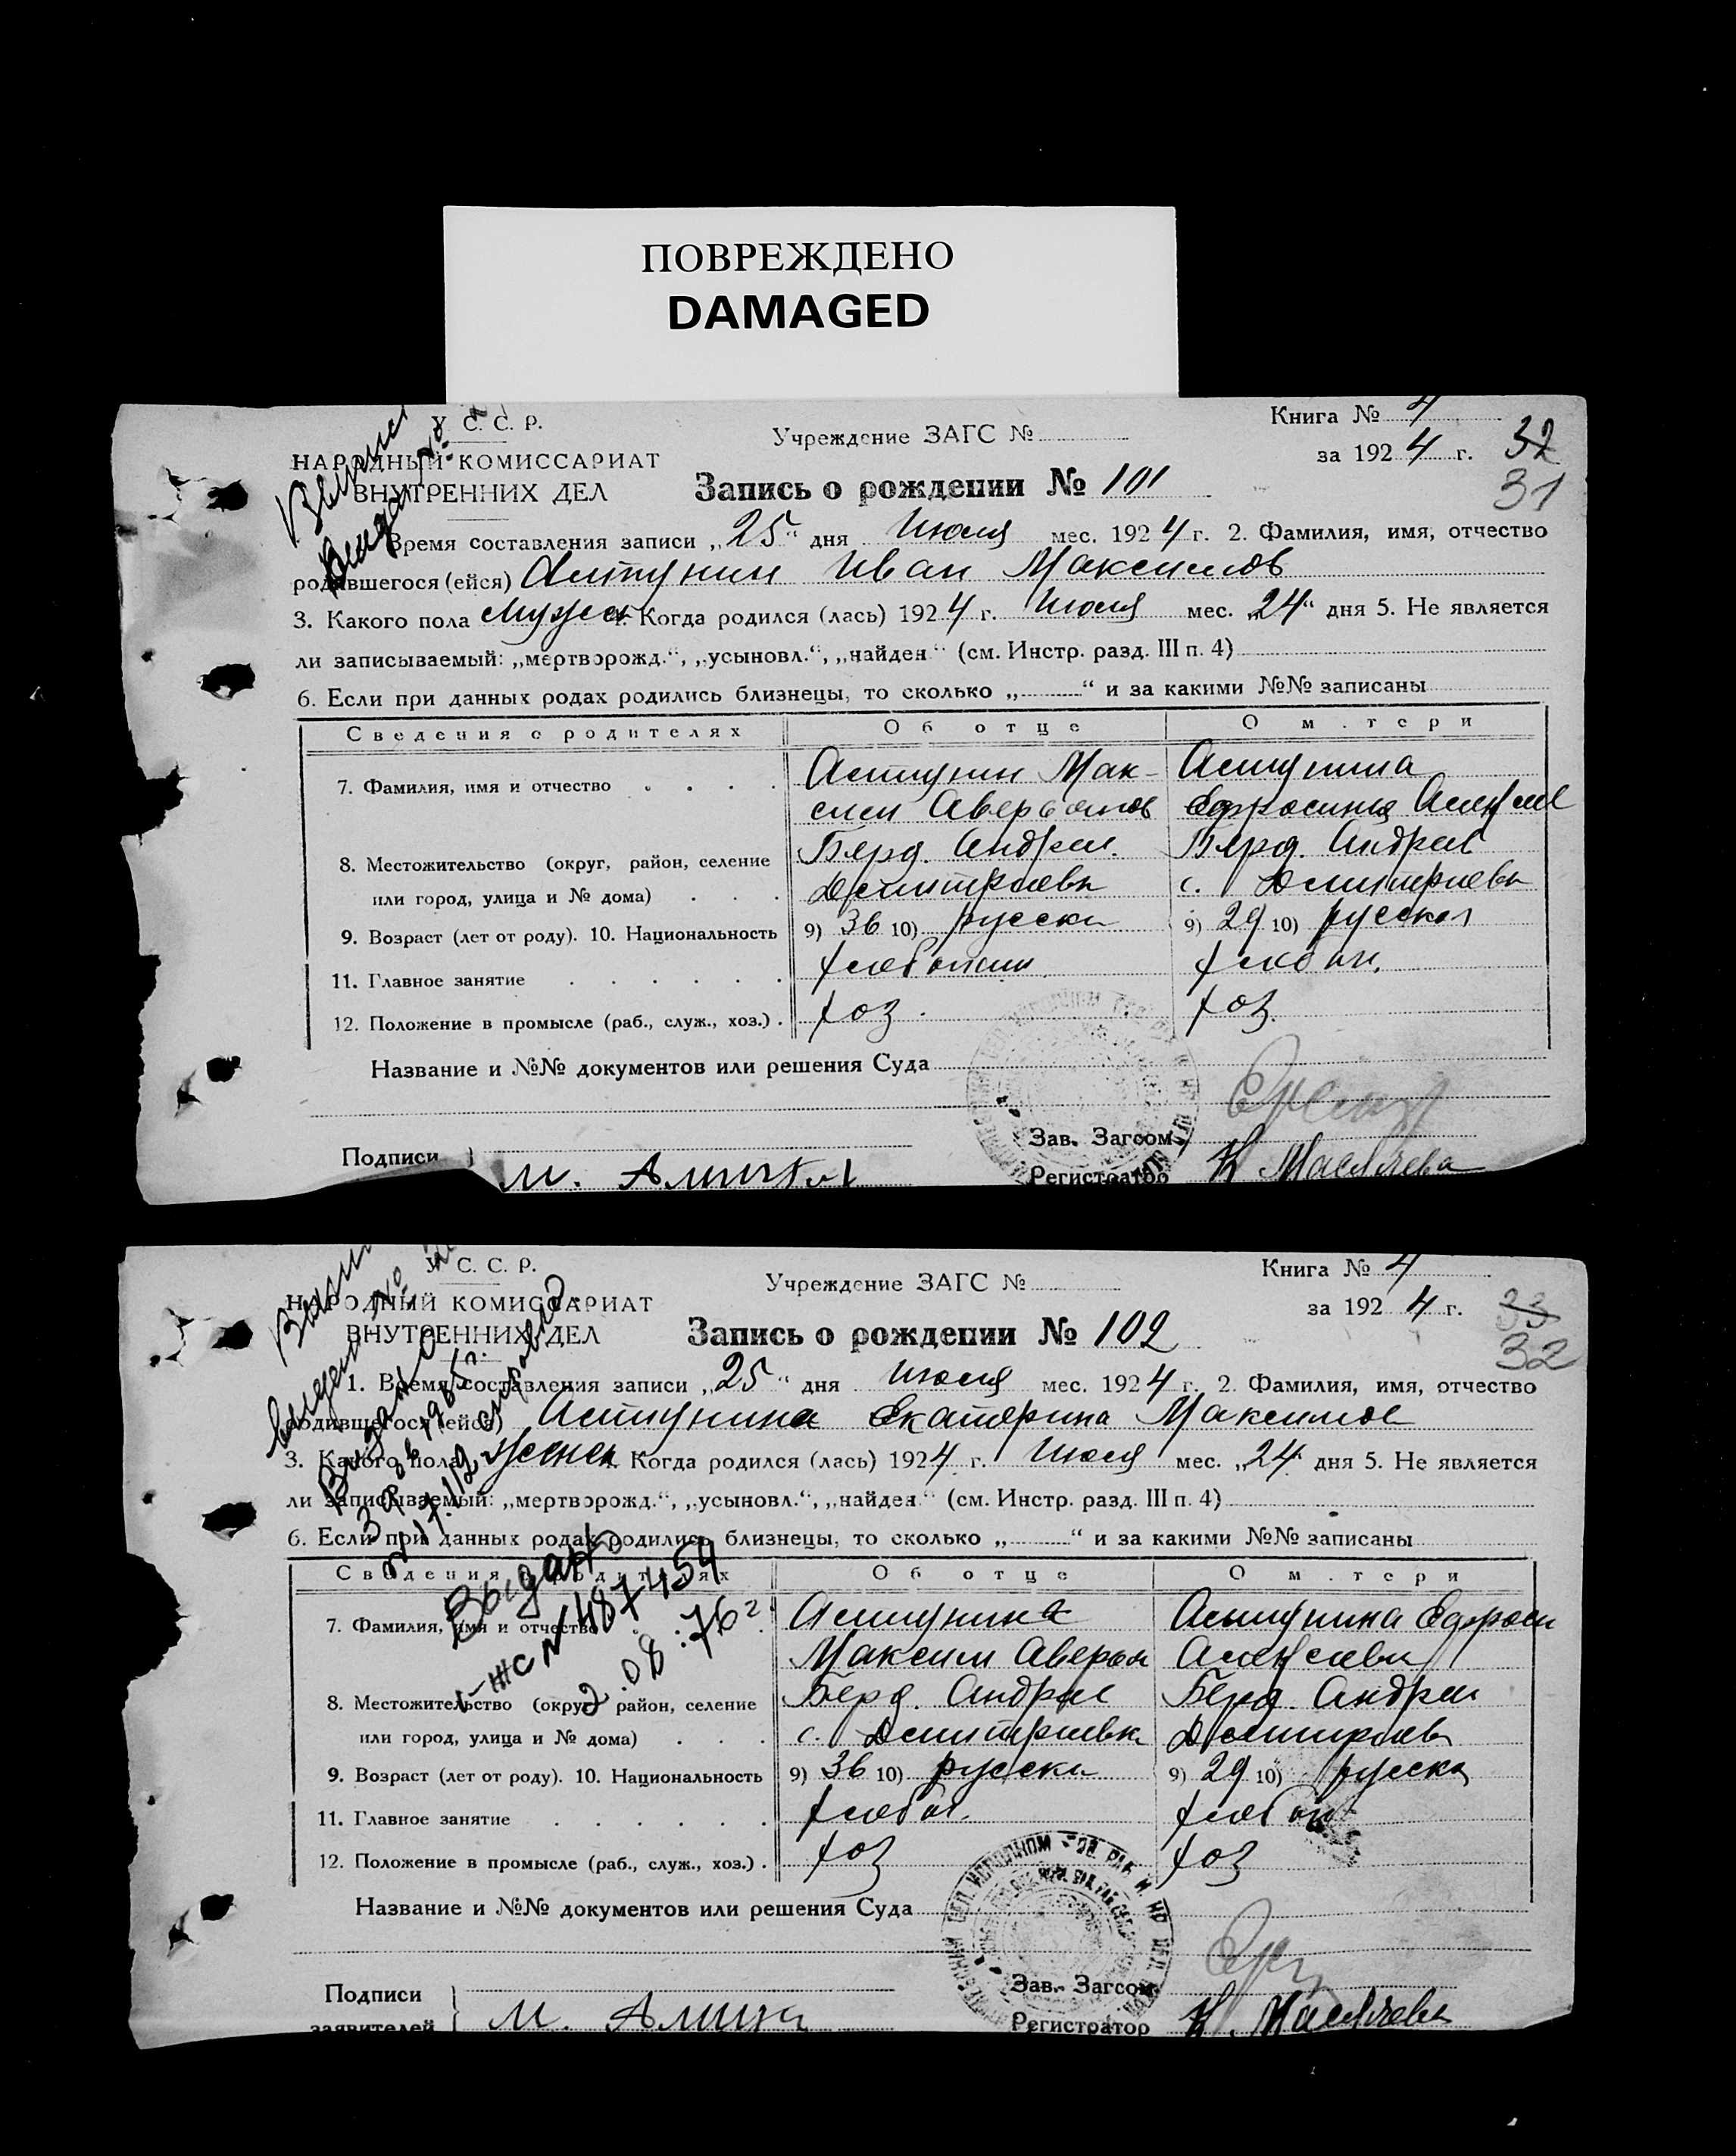 ПОВРЕЖДЕНО
DAMAGED
У. С. С. Р.
НАРОДНЫЙ КОМИССАРИАТ
ВНУТРЕННИХ ДЕЛ
Учреждение ЗАГС №
Книга № 4
за 1924 г.
32
31
Запись о рождении № 101
Время составления записи „25“ дня Июля мес. 1924 г. 2. Фамилия, имя, отчество
родившегося (ейся) Алтунин Иван Максимов
3. Какого пола мужск 4. Когда родился (лась) 1924 г. Июля мес. „24“ дня 5. Не является
ли записываемый: „мертворожд.“, „усыновл.“, „найден“ (см. Инстр. разд. III п. 4)
6. Если при данных родах родились близнецы, то сколько „ “ и за какими №№ записаны
Сведения о родителях Об отце О матери
7. Фамилия, имя и отчество Алтунин Максим Аверьянов Алтунина Ефросиния
8. Местожительство (округ, район, селение или город, улица и № дома) Бярд. Андреи. Дмитриевк Бярд. Андреев с. Дмитриевк
9. Возраст (лет от роду). 10. Национальность 9) 36 10) русски 9) 29 10) русская
11. Главное занятие хлебопаш. хлебоп.
12. Положение в промысле (раб., служ., хоз.) хоз. хоз.
Название и №№ документов или решения Суда
Зав. Загсом
Подписи М. Алтунин
Регистратор К Маслячева
У. С. С. Р.
НАРОДНЫЙ КОМИССАРИАТ
ВНУТРЕННИХ ДЕЛ
Учреждение ЗАГС №
Книга № 4
за 1924 г.
33
32
Запись о рождении № 102
1. Время составления записи „25“ дня Июля мес. 1924 г. 2. Фамилия, имя, отчество
родившегося (ейся) Алтунина Екатерина Максимов
3. Какого пола женск 4. Когда родился (лась) 1924 г. Июля мес. „24“ дня 5. Не является
ли записываемый: „мертворожд.“, „усыновл.“, „найден“ (см. Инстр. разд. III п. 4)
6. Если при данных родах родились близнецы, то сколько „ “ и за какими №№ записаны
Выдано
I-ЖС № 487454
2.08.76г.
Сведения о родителях Об отце О матери
7. Фамилия, имя и отчество Алтунина Максим Аверья Алтунина Ефроси
8. Местожительство (округ, район, селение или город, улица и № дома) Бярд. Андрее с. Дмитриевк Бярд. Андреи Дмитриев
9. Возраст (лет от роду). 10. Национальность 9) 36 10) русски 9) 29 10) русска
11. Главное занятие хлебоп. хлебоп
12. Положение в промысле (раб., служ., хоз.) хоз хоз
Название и №№ документов или решения Суда
Зав. Загсом
Подписи
заявителей М. Алтун
Регистратор К. Маслячева